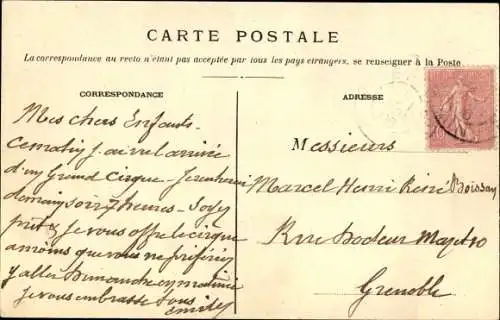 CARTE POSTALE
La correspondance au recto n'étant pas acceptée par tous les pays étrangers, se renseigner à la Poste
CORRESPONDANCE
Mes chers Enfants
Ce matin j'ai vu l'arrivée
d'un grand Cirque
demain soir 7 heures - Soyez
prêts je vous offre le cirque
à moins que vous ne préfériez
y aller Dimanche en matinée
Je vous embrasse tous
ADRESSE
Messieurs
Marcel Henri René Boissay
Rue Docteur
Grenoble